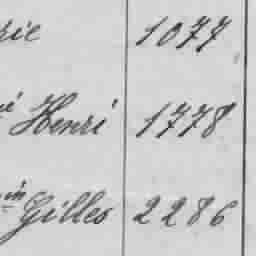 rie 1077
Henri 1778
Gilles 2286